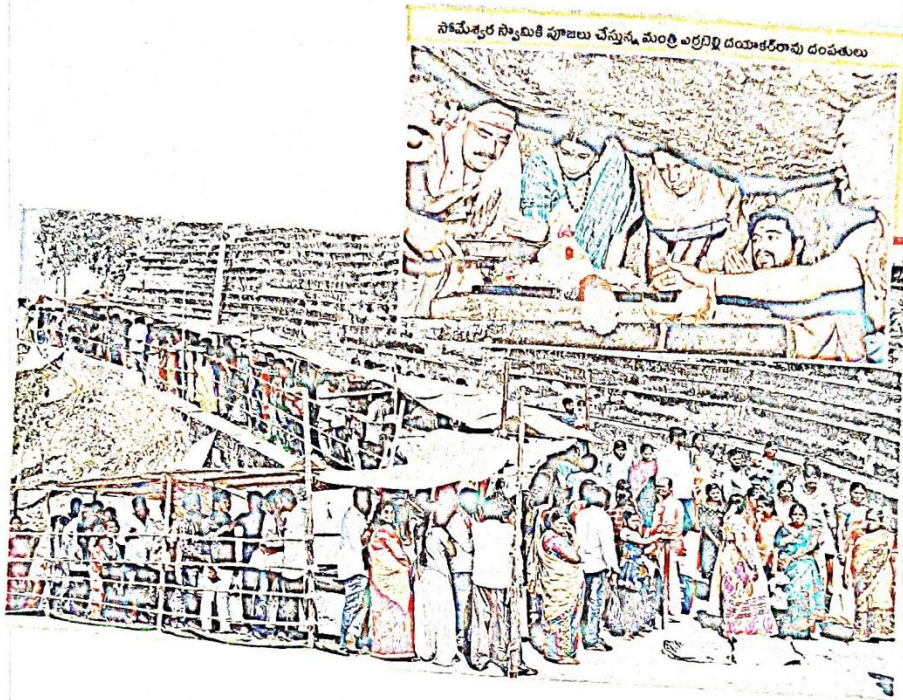 సోమేశ్వర స్వామికి పూజలు చేస్తున్న మంత్రి ఎర్రబెల్లి దయాకర్‌రావు దంపతులు